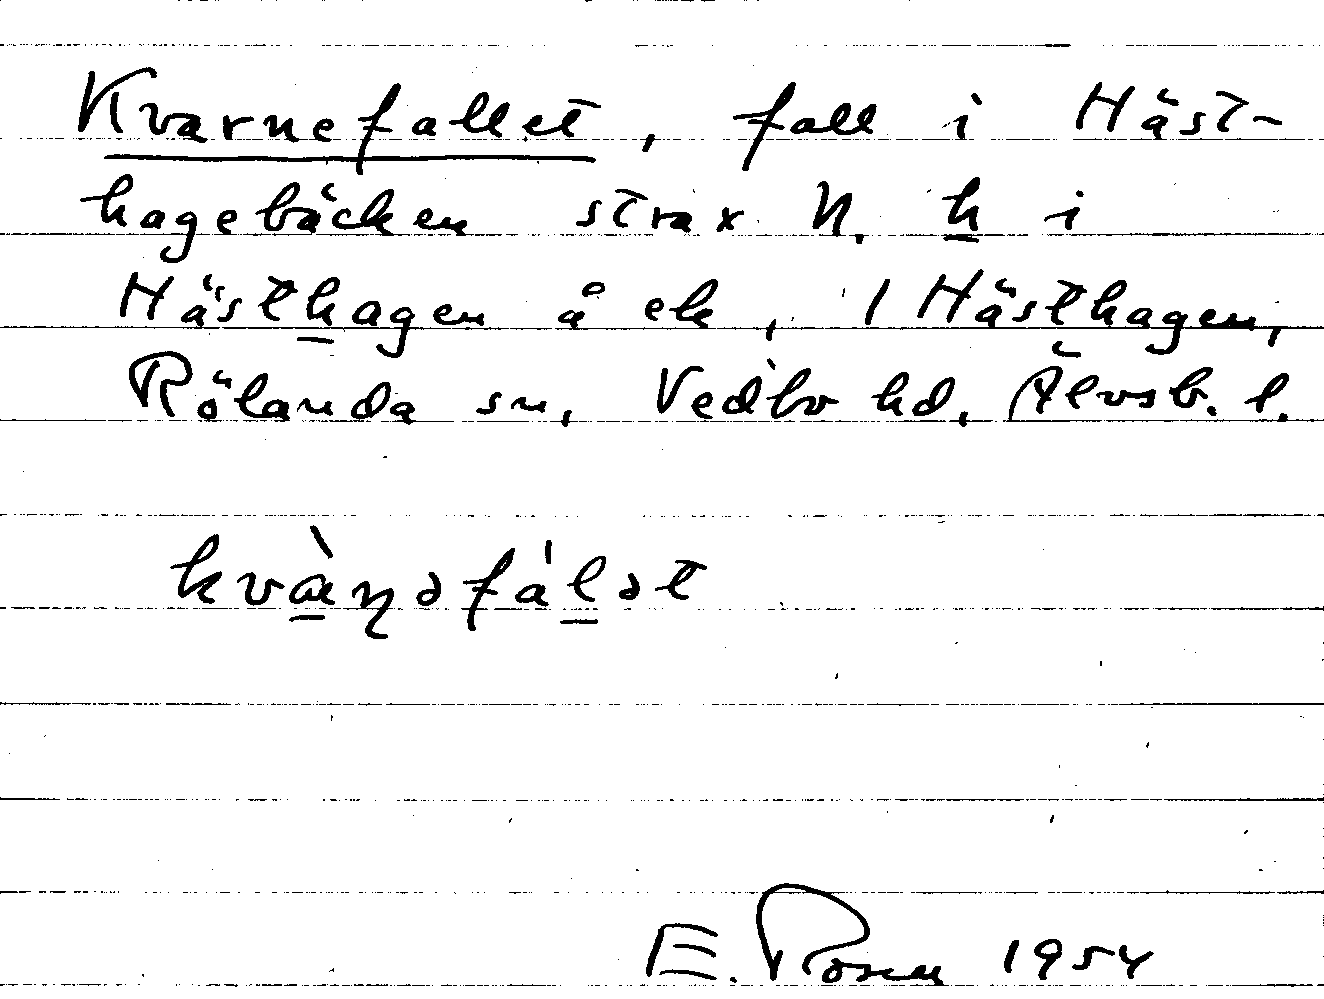 Kvarnefallet, fall i Häst-
hagebäcken strax N. h i
Hästhagen å ek, 1 Hästhagen,
Rölanda sn, Vedbo hd, Älvsb. l.
kvà̱ɳəfáḻət
E. Rosen 1954